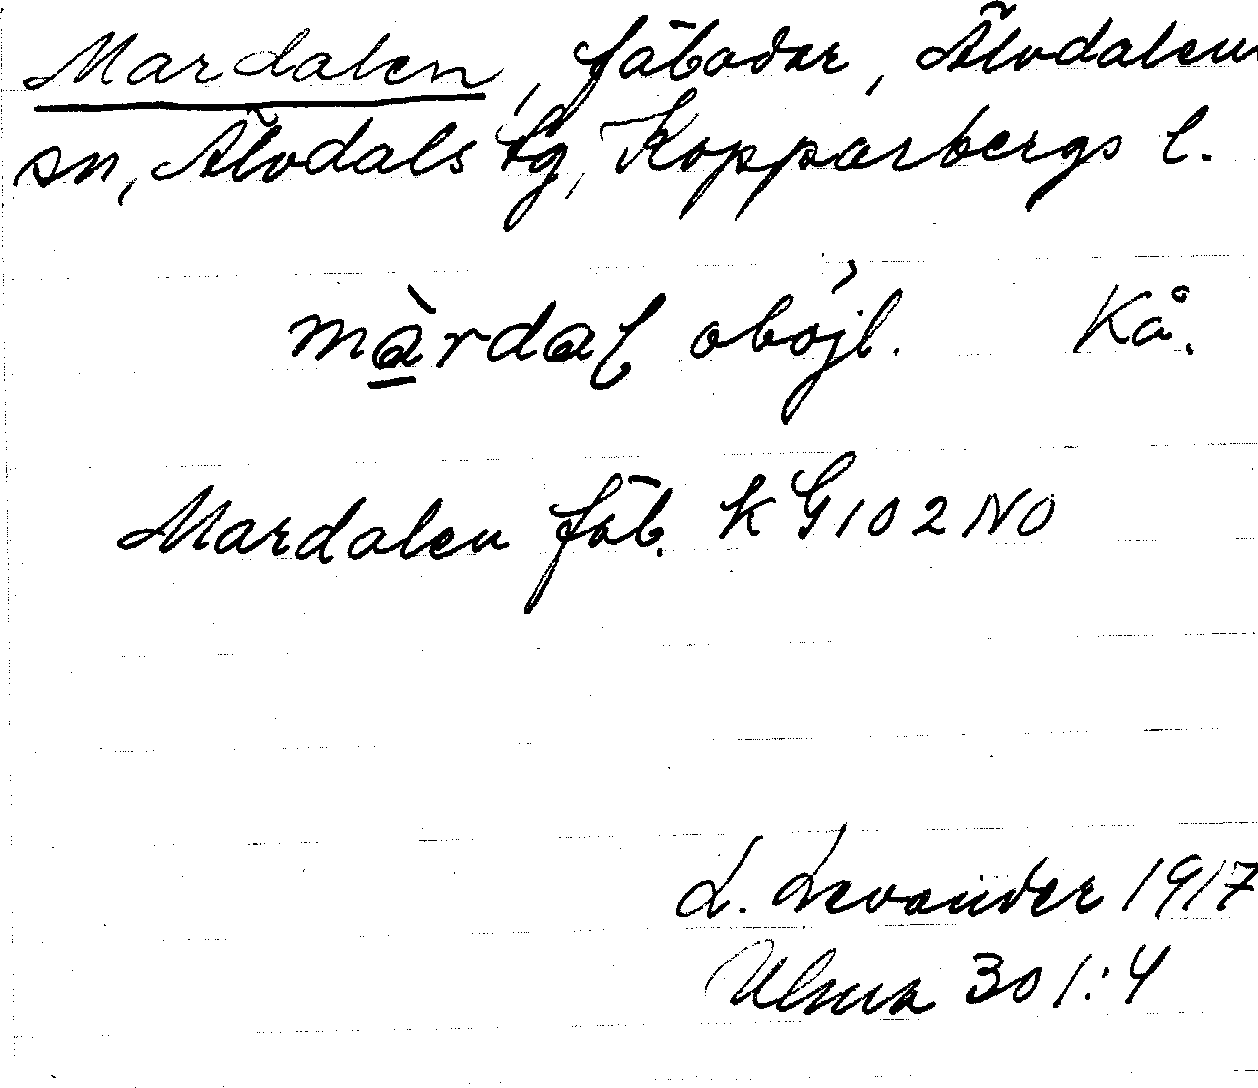 Mardalen, fäbodar, Älvdalens
sn, Älvdals tg, Kopparbergs l.
màrdaɭ oböjl. Kå.
Mardalen fäb. KG102NO
L. Levander 1917
Ulma 301:4